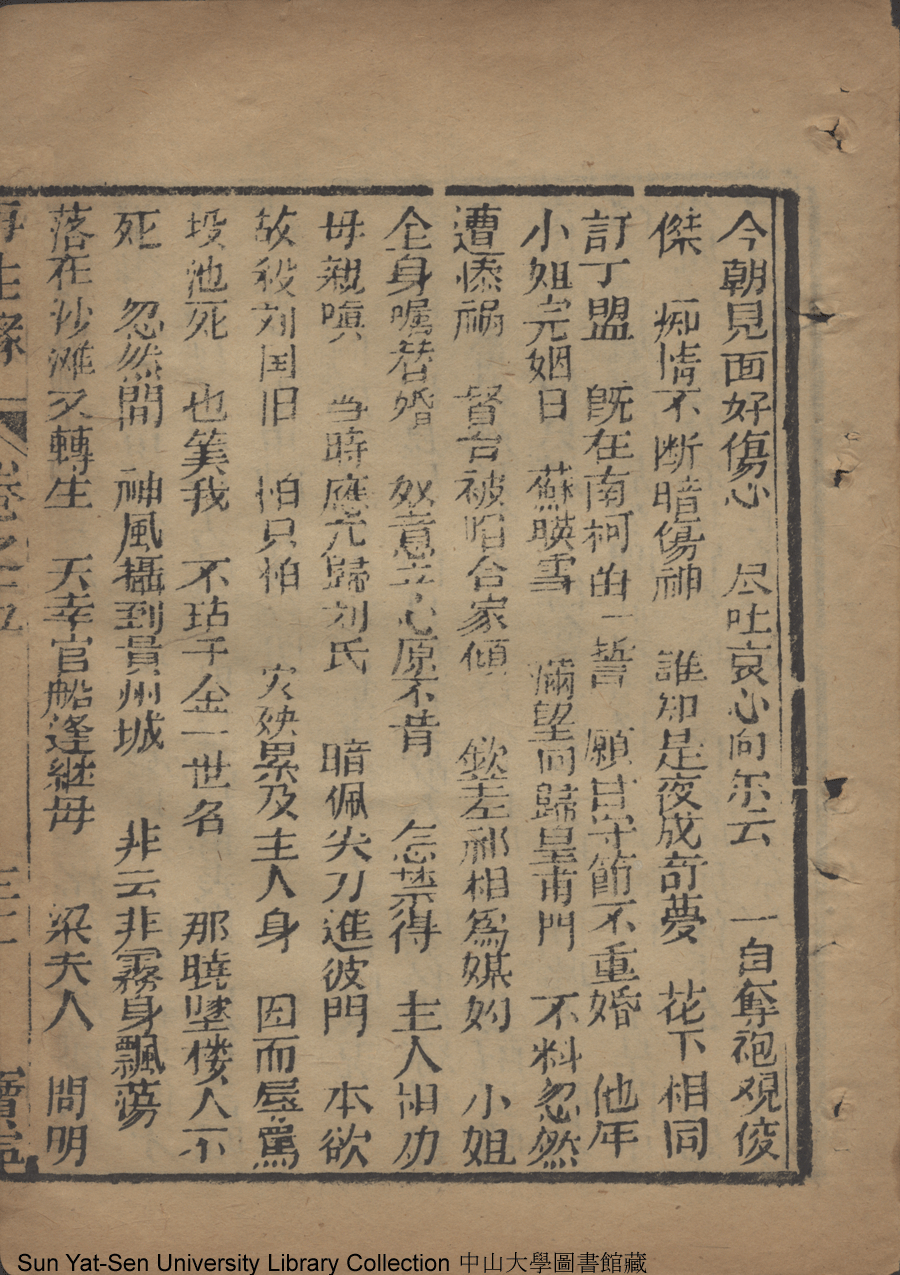 今朝見面好傷心　尽吐哀心向尔云　一自奪袍观俊
傑　痴情不断暗傷神　誰知是夜成奇夢　花下相同
訂丁盟　既在南柯曲一誓　願甘守節不重婚　他年
小姐完姻日　蘇暎雪　滿望同歸皇甫門　不料忽然
遭慘禍　督台被陷合家傾　欽差祁相為媒妁　小姐
全身嘱替婚　奴意立心原不肯　怎禁得　主人相劝
毋親嗔　当時應允歸刘氏　暗佩尖刀進彼門　本欲
故殺刘国旧　怕只怕　灾殃累及主人身　因而辱罵
投池死　也筭我　不玷千金一世名　那曉墜楼人不
死　忽然間　神風攝到貴州城　非云非霧身飄蕩
落在沙滩又轉生　天幸官船逢继毋　梁夫人　問明
再生缘　卷之十九
Sun Yat-Sen University Library Collection 中山大學圖書館藏